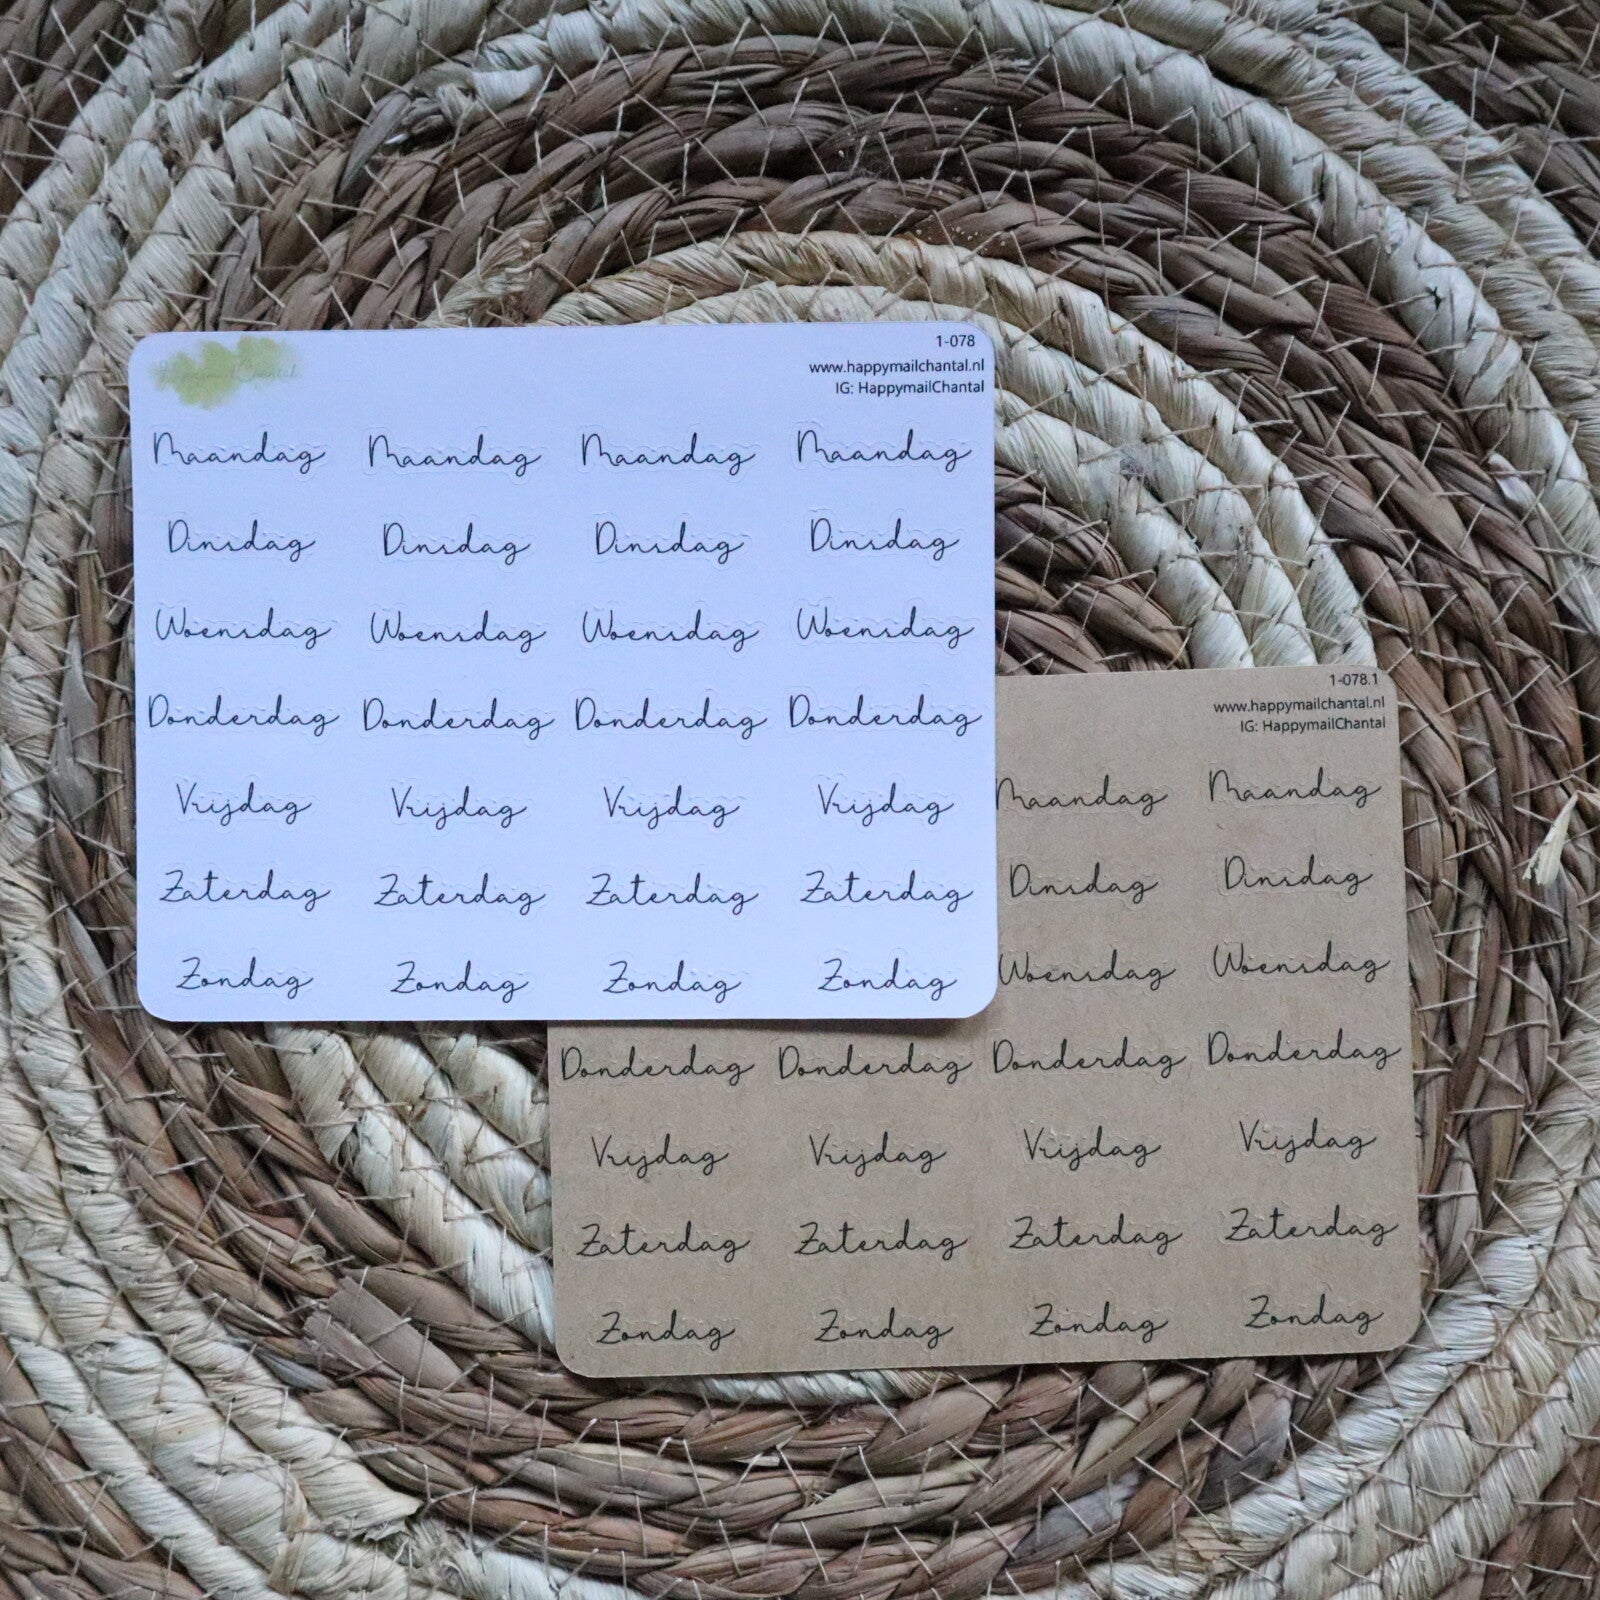 HappymailChantal
1-078
www.happymailchantal.nl
IG: HappymailChantal
Maandag Maandag Maandag Maandag
Dinsdag Dinsdag Dinsdag Dinsdag
Woensdag Woensdag Woensdag Woensdag
Donderdag Donderdag Donderdag Donderdag
Vrijdag Vrijdag Vrijdag Vrijdag
Zaterdag Zaterdag Zaterdag Zaterdag
Zondag Zondag Zondag Zondag
1-078.1
www.happymailchantal.nl
IG: HappymailChantal
Maandag Maandag
Dinsdag Dinsdag
Woensdag Woensdag
Donderdag Donderdag Donderdag Donderdag
Vrijdag Vrijdag Vrijdag Vrijdag
Zaterdag Zaterdag Zaterdag Zaterdag
Zondag Zondag Zondag Zondag